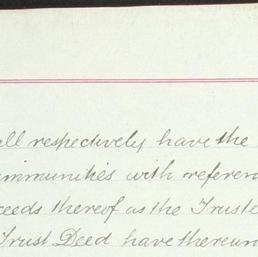 ll respectively have the
mmunities with referen
ceeds thereof as the Truste
Trust Deed have thereun